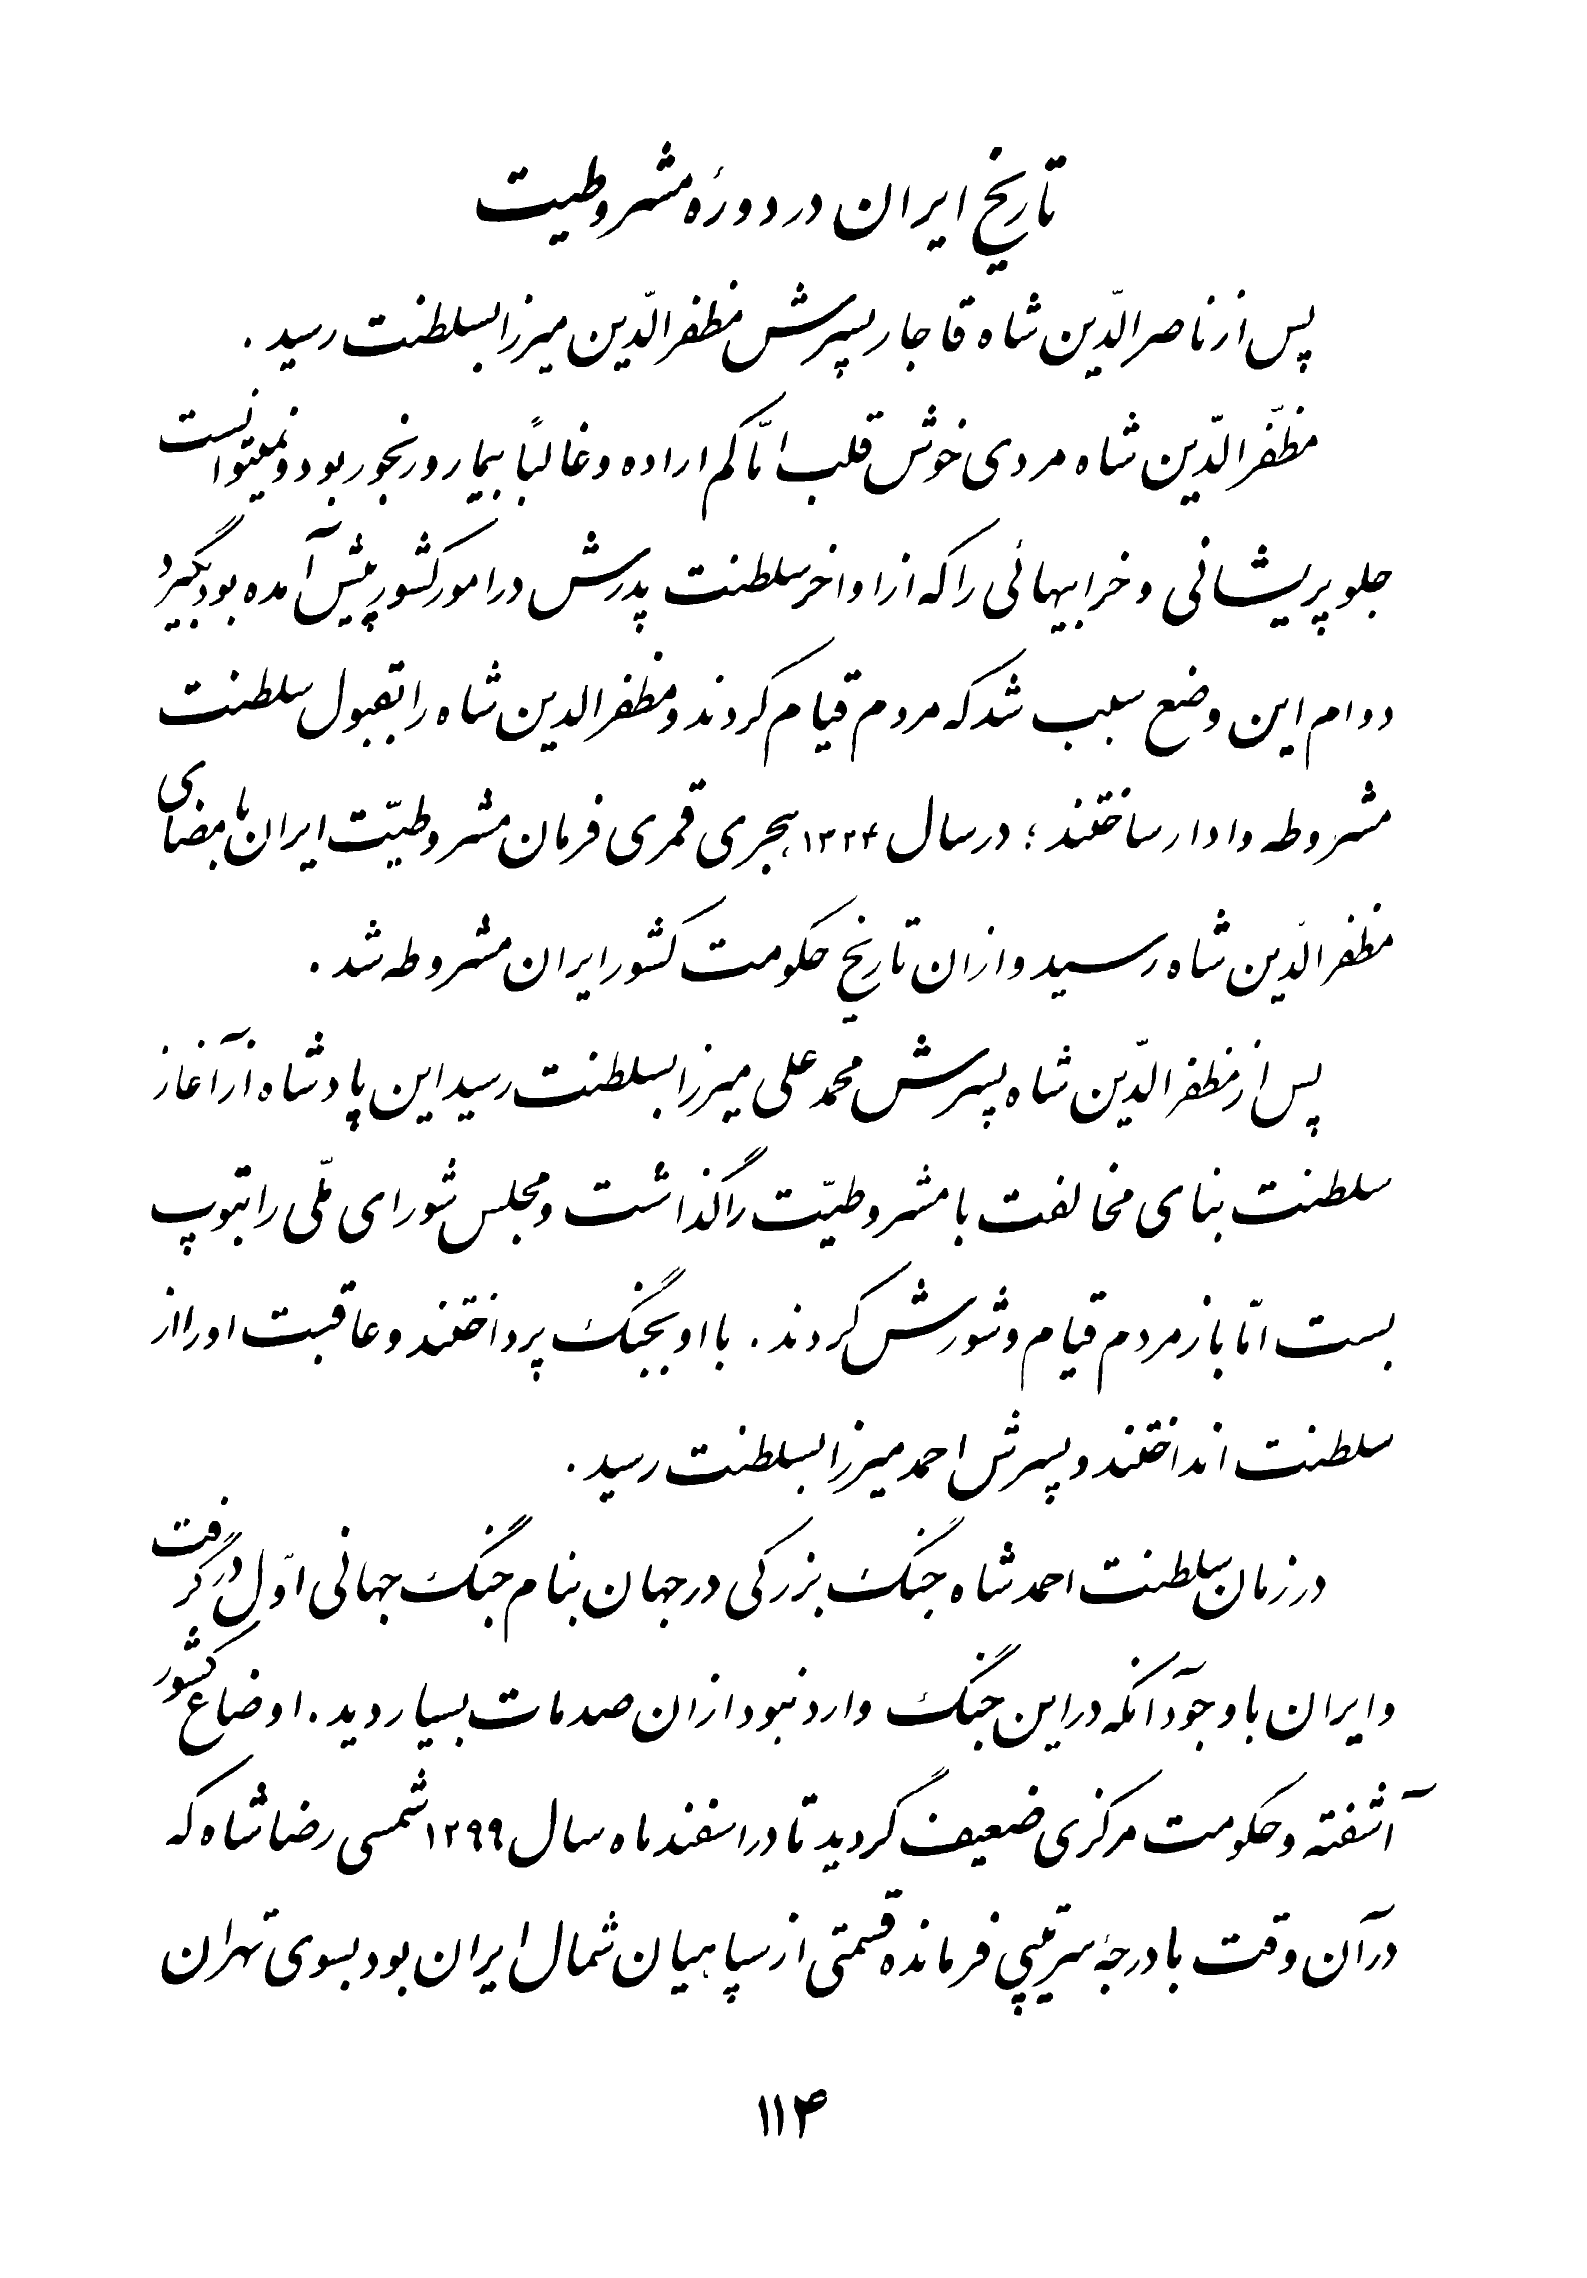 تاریخ ایران در دورهٔ مشروطیت
پس از ناصرالدّین شاه قاجار پسرش مظفرالدّین میرزا بسلطنت رسید .
مظفّرالدّین شاه مردی خوش قلب امّا کم اراده و غالباً بیمار و رنجور بود و نمیتوانست
جلو پریشانی و خرابیهائی را که از اواخر سلطنت پدرش در امور کشور پیش آمده بود بگیرد
دوام این وضع سبب شد که مردم قیام کردند و مظفرالدین شاه را بقبول سلطنت
مشروطه وادار ساختند ؛ در سال ۱۳۲۴ هجری قمری فرمان مشروطیّت ایران بامضای
مظفرالدّین شاه رسید و ازان تاریخ حکومت کشور ایران مشروطه شد .
پس از مظفرالدّین شاه پسرش محمد علی میرزا بسلطنت رسید این پادشاه از آغاز
سلطنت بنای مخالفت با مشروطیّت را گذاشت و مجلس شورای ملّی را بتوپ
بست امّا باز مردم قیام و شورش کردند . با او بجنگ پرداختند و عاقبت او را از
سلطنت انداختند و پسرش احمد میرزا بسلطنت رسید .
در زمان سلطنت احمد شاه جنگ بزرگی در جهان بنام جنگ جهانی اوّل درگرفت
و ایران با وجود آنکه در این جنگ وارد نبود ازان صدمات بسیار دید . اوضاع کشور
آشفته و حکومت مرکزی ضعیف گردید تا در اسفند ماه سال ۱۲۹۹ شمسی رضا شاه که
در آن وقت با درجهٔ سرتیپی فرمانده قسمتی از سپاهیان شمال ایران بود بسوی تهران
۱۱۴